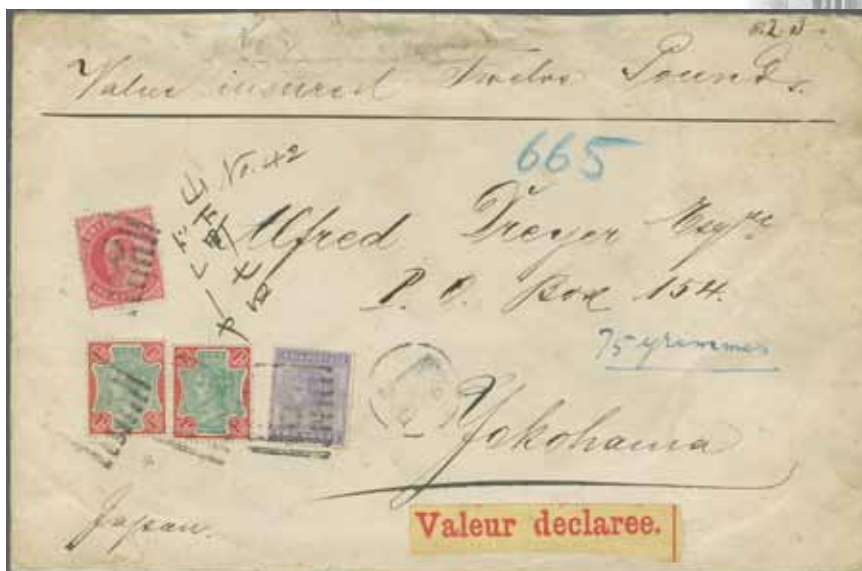 Value insured Twelve Pounds.
665
No. 42
山下町七四
ドレーヤ
Alfred Dreyer Esqre
P. O. Box 154.
75 grammes
Yokohama
Japan.
Valeur déclaree.